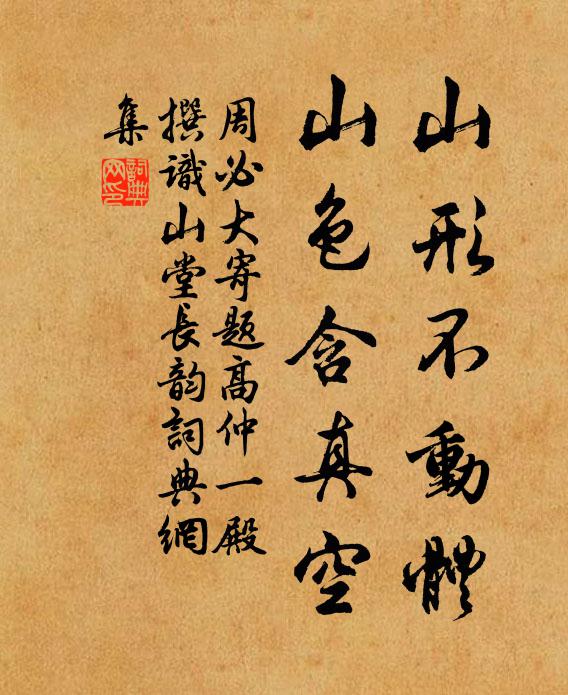 山形不動體
山色含真空
周必大寄題高仲一殿
撰識山堂長韵詞典網
集
詞典网印